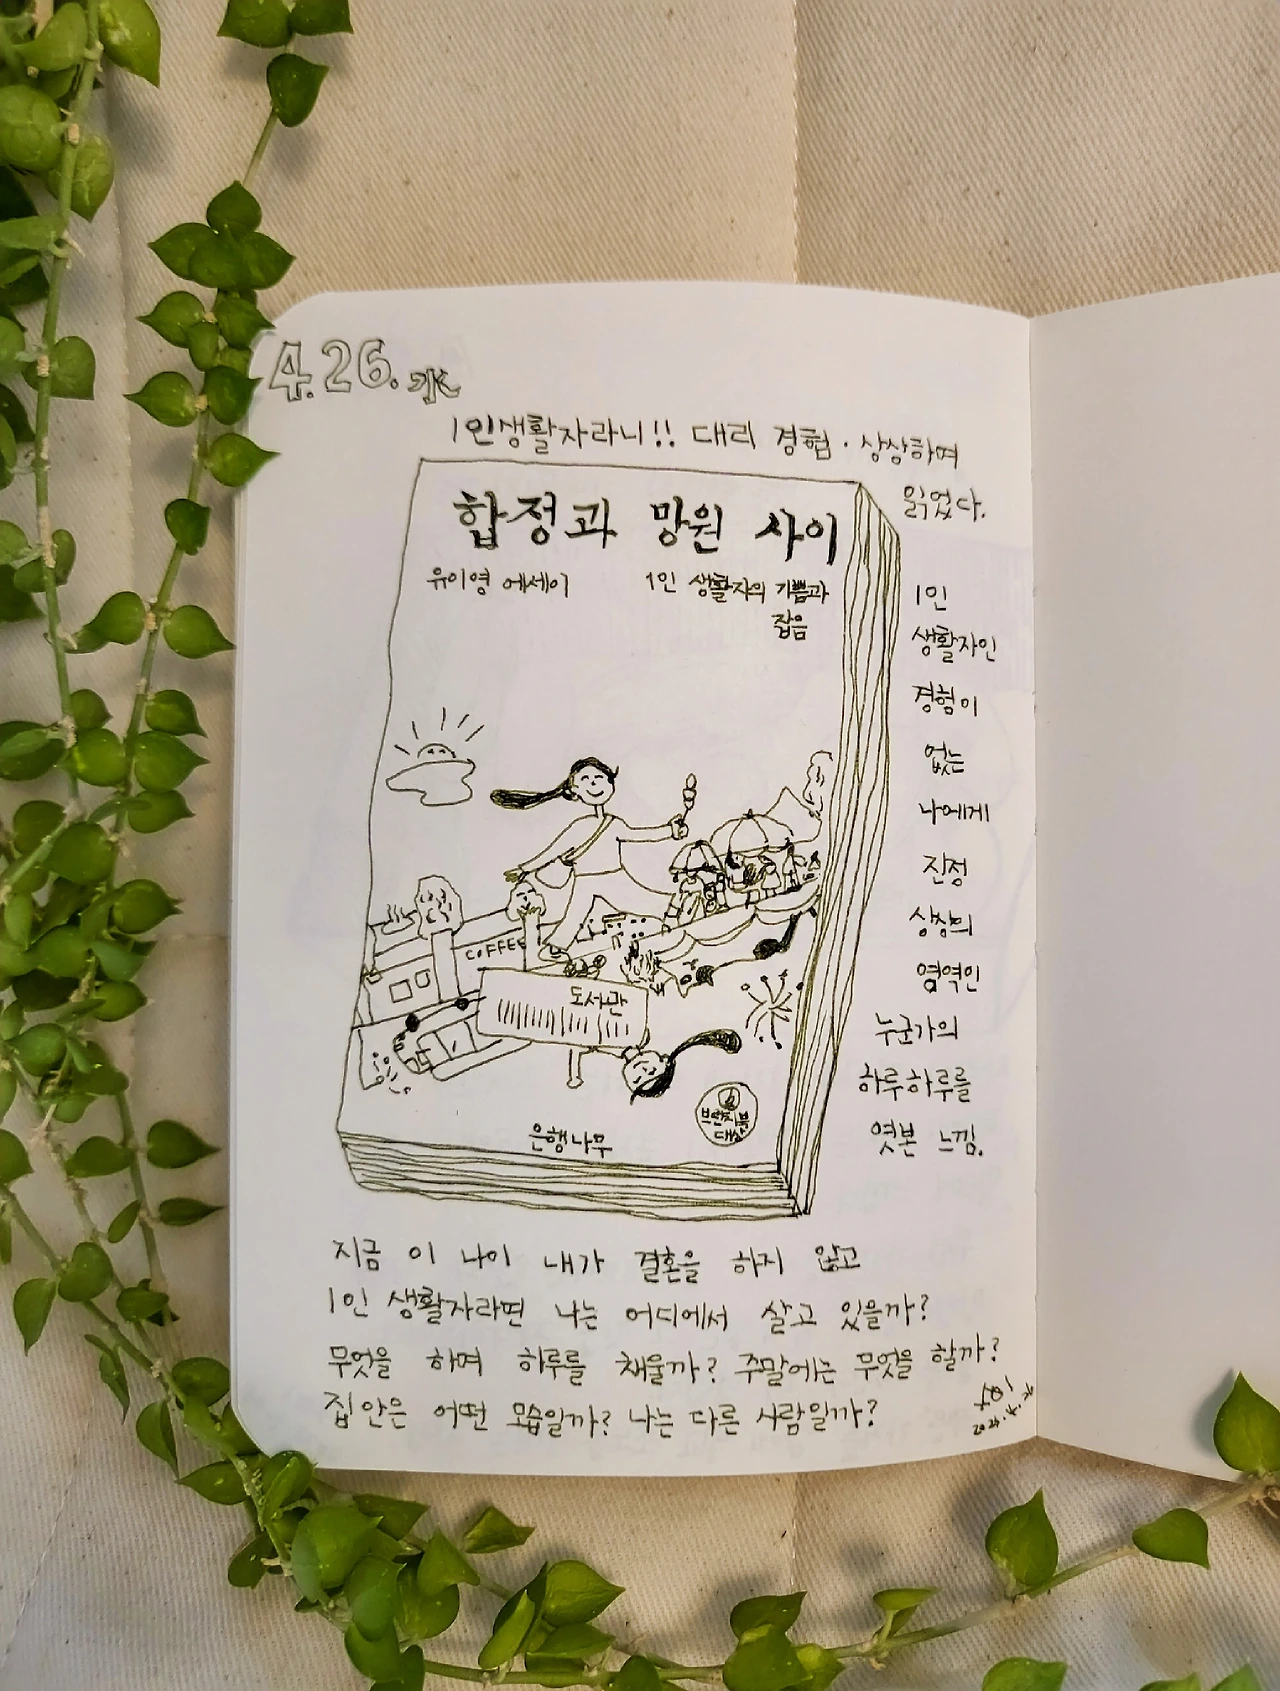 4.26. 水
1인생활자라니!! 대리 경험·상상하며
읽었다.
합정과 망원 사이
유이영 에세이 1인 생활자의 기쁨과
잡음
COFFEE
도서관
브런치북
대상
은행나무
1인
생활자인
경험이
없는
나에게
진정
상상의
영역인
누군가의
하루하루를
엿본 느낌.
지금 이 나이 내가 결혼을 하지 않고
1인 생활자라면 나는 어디에서 살고 있을까?
무엇을 하며 하루를 채울까? 주말에는 무엇을 할까?
집안은 어떤 모습일까? 나는 다른 사람일까?